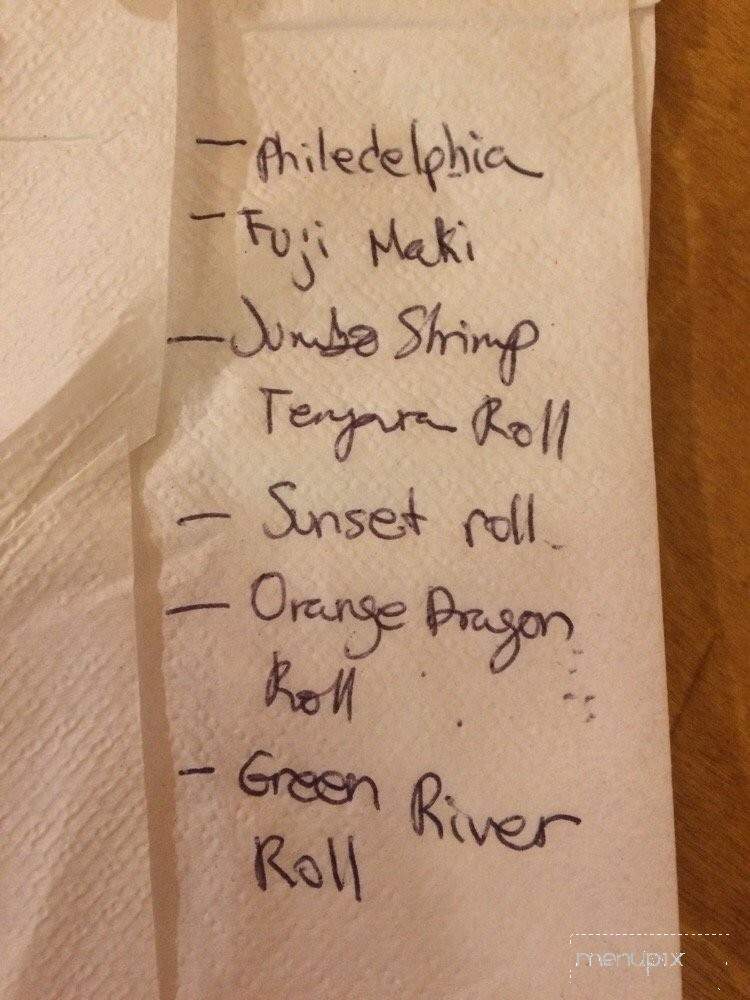 - Philedelphia
- Fuji Maki
- Jumbo Shrimp
Tempura Roll
- Sunset roll
- Orange Dragon
Roll
- Green River
Roll
menupix